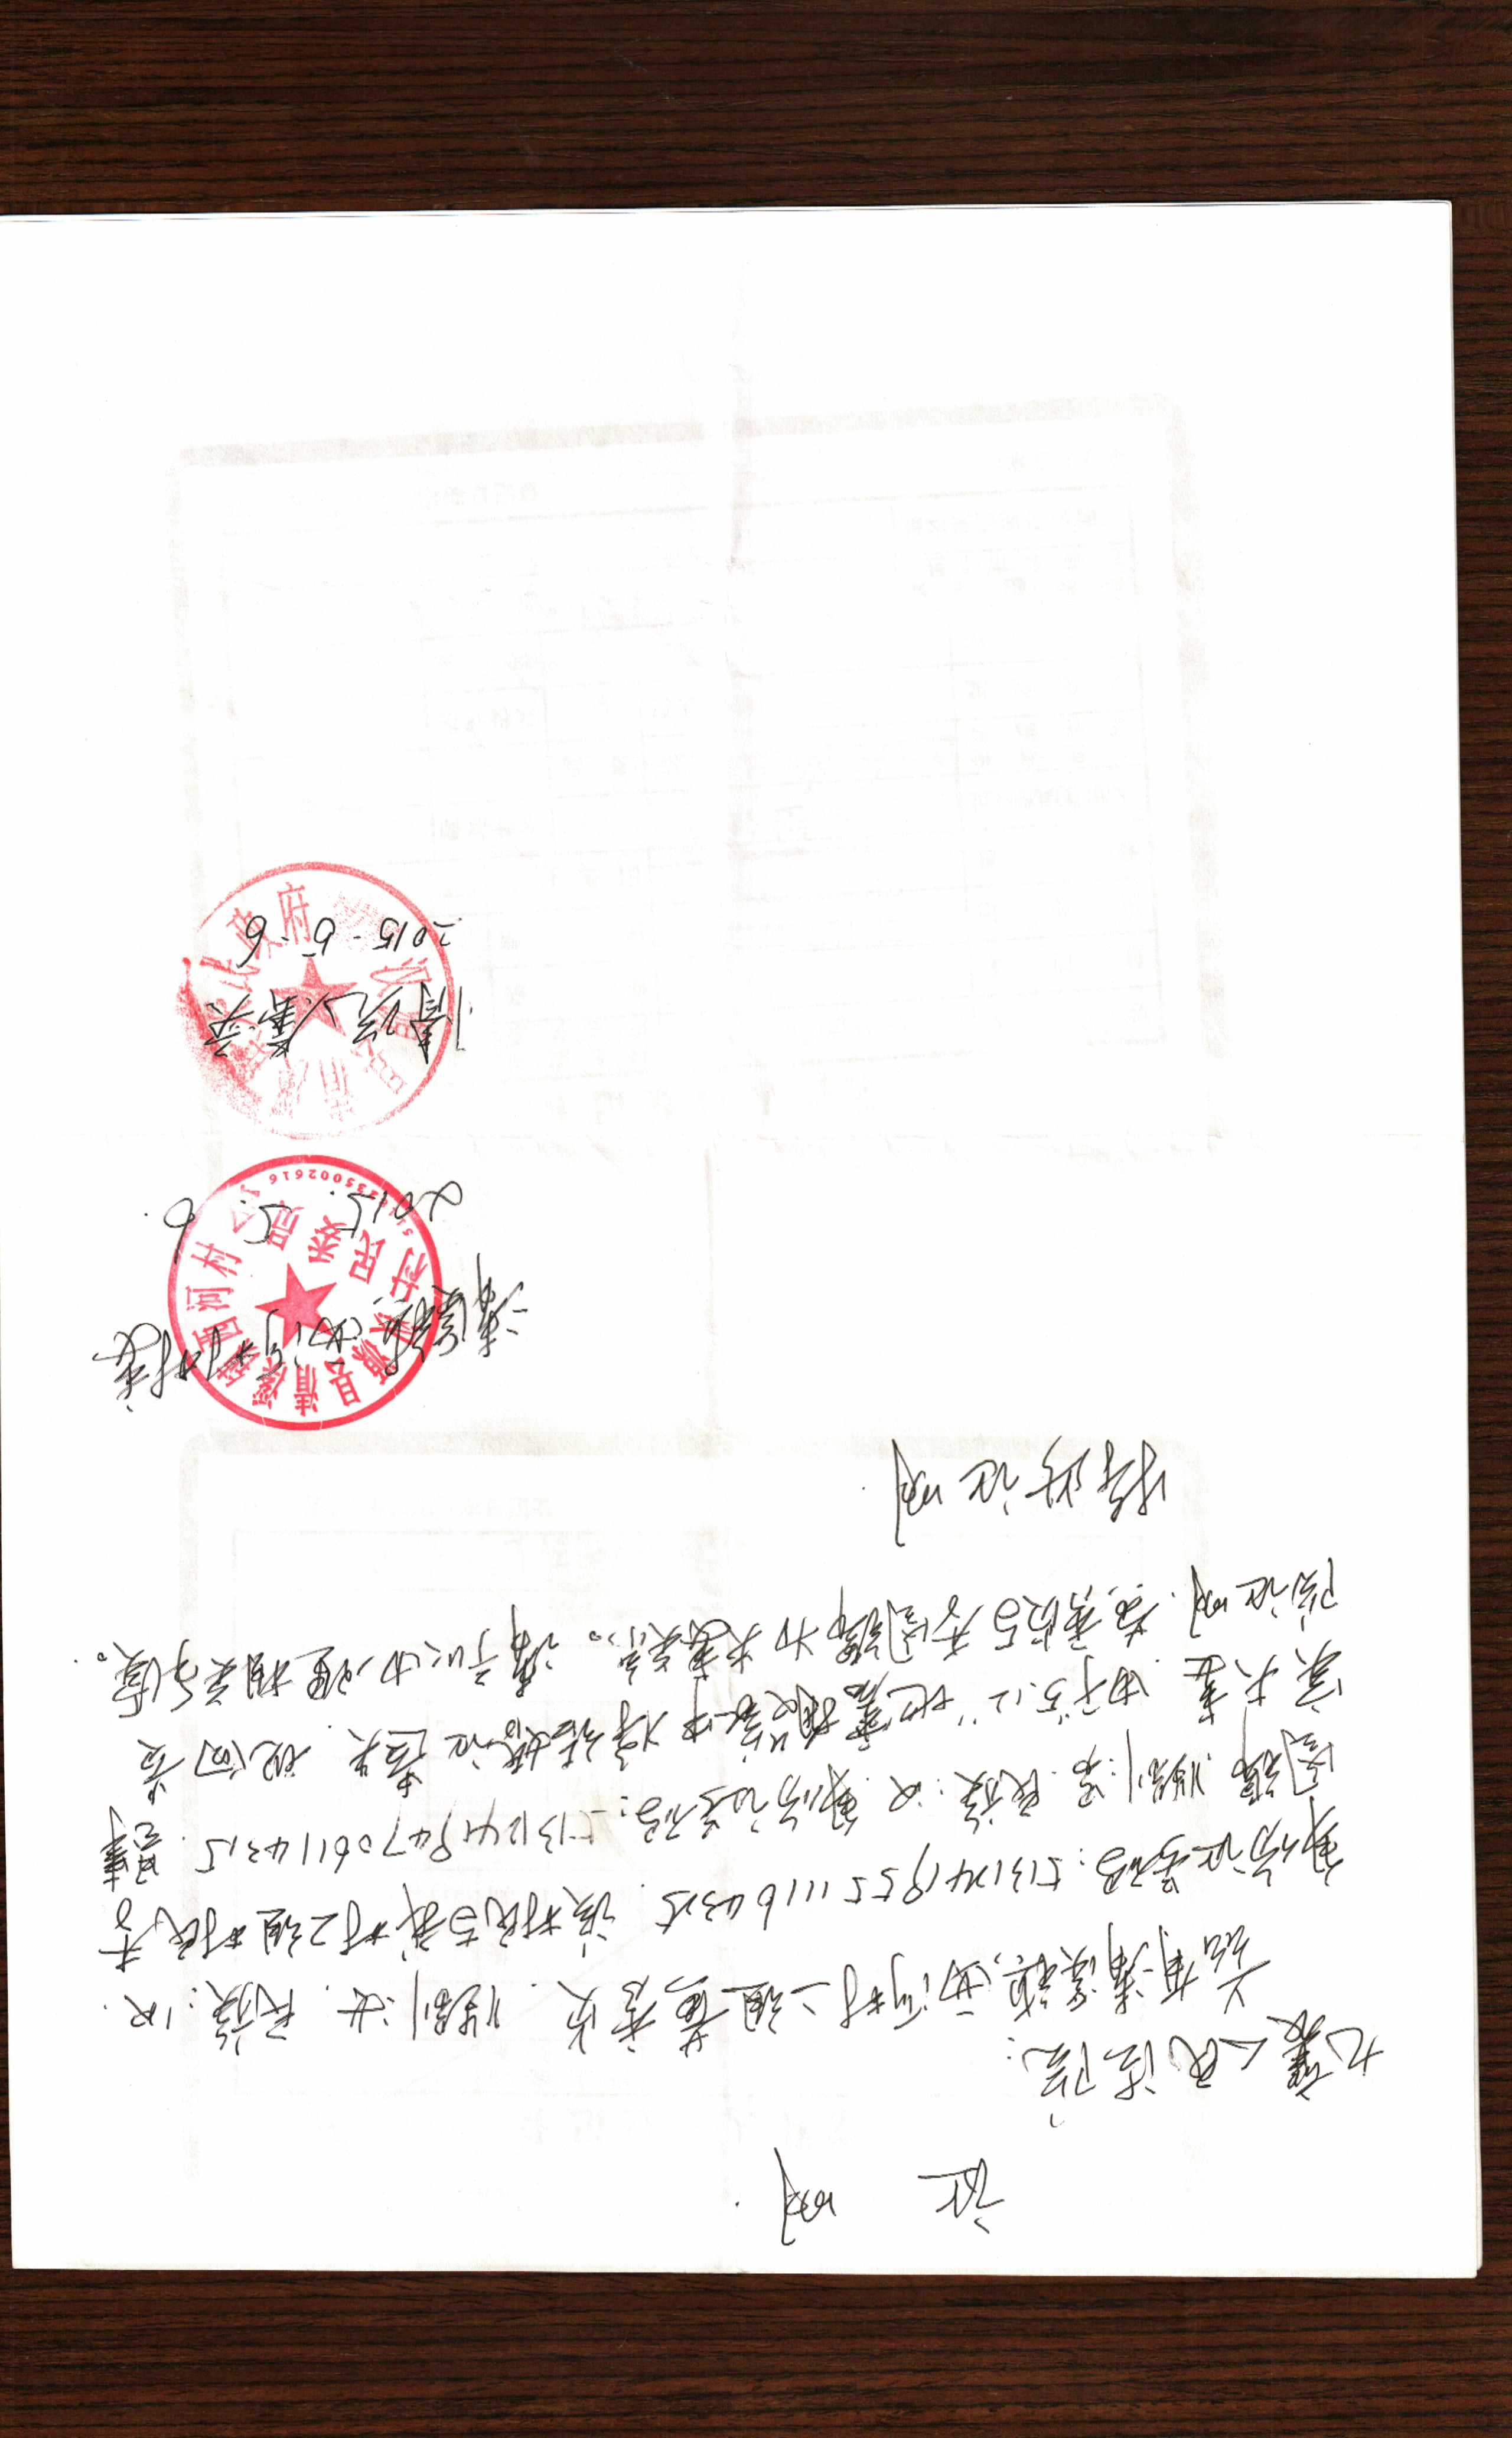 证 明.
九襄人民法院:
兹有清溪镇西河村二组黄秀贞.性别:女.民族:汉.
身份证号码:513124195511164325.该村民与我村2组村民李
图锦.性别:男.民族:汉.身份证号码:513124194706114315.是事
实夫妻.由于"5.12"地震搬家中将结婚证遗失.现向贵
院证明.黄秀贞与李图锦为夫妻关系。请予以办理相关手续。
特此证明.
清溪镇西河村村委
2015.5.6.
汉源县清溪镇西河村
村民委员会
5002616
情况属实
2015-5-6
汉源县清溪镇人民政府